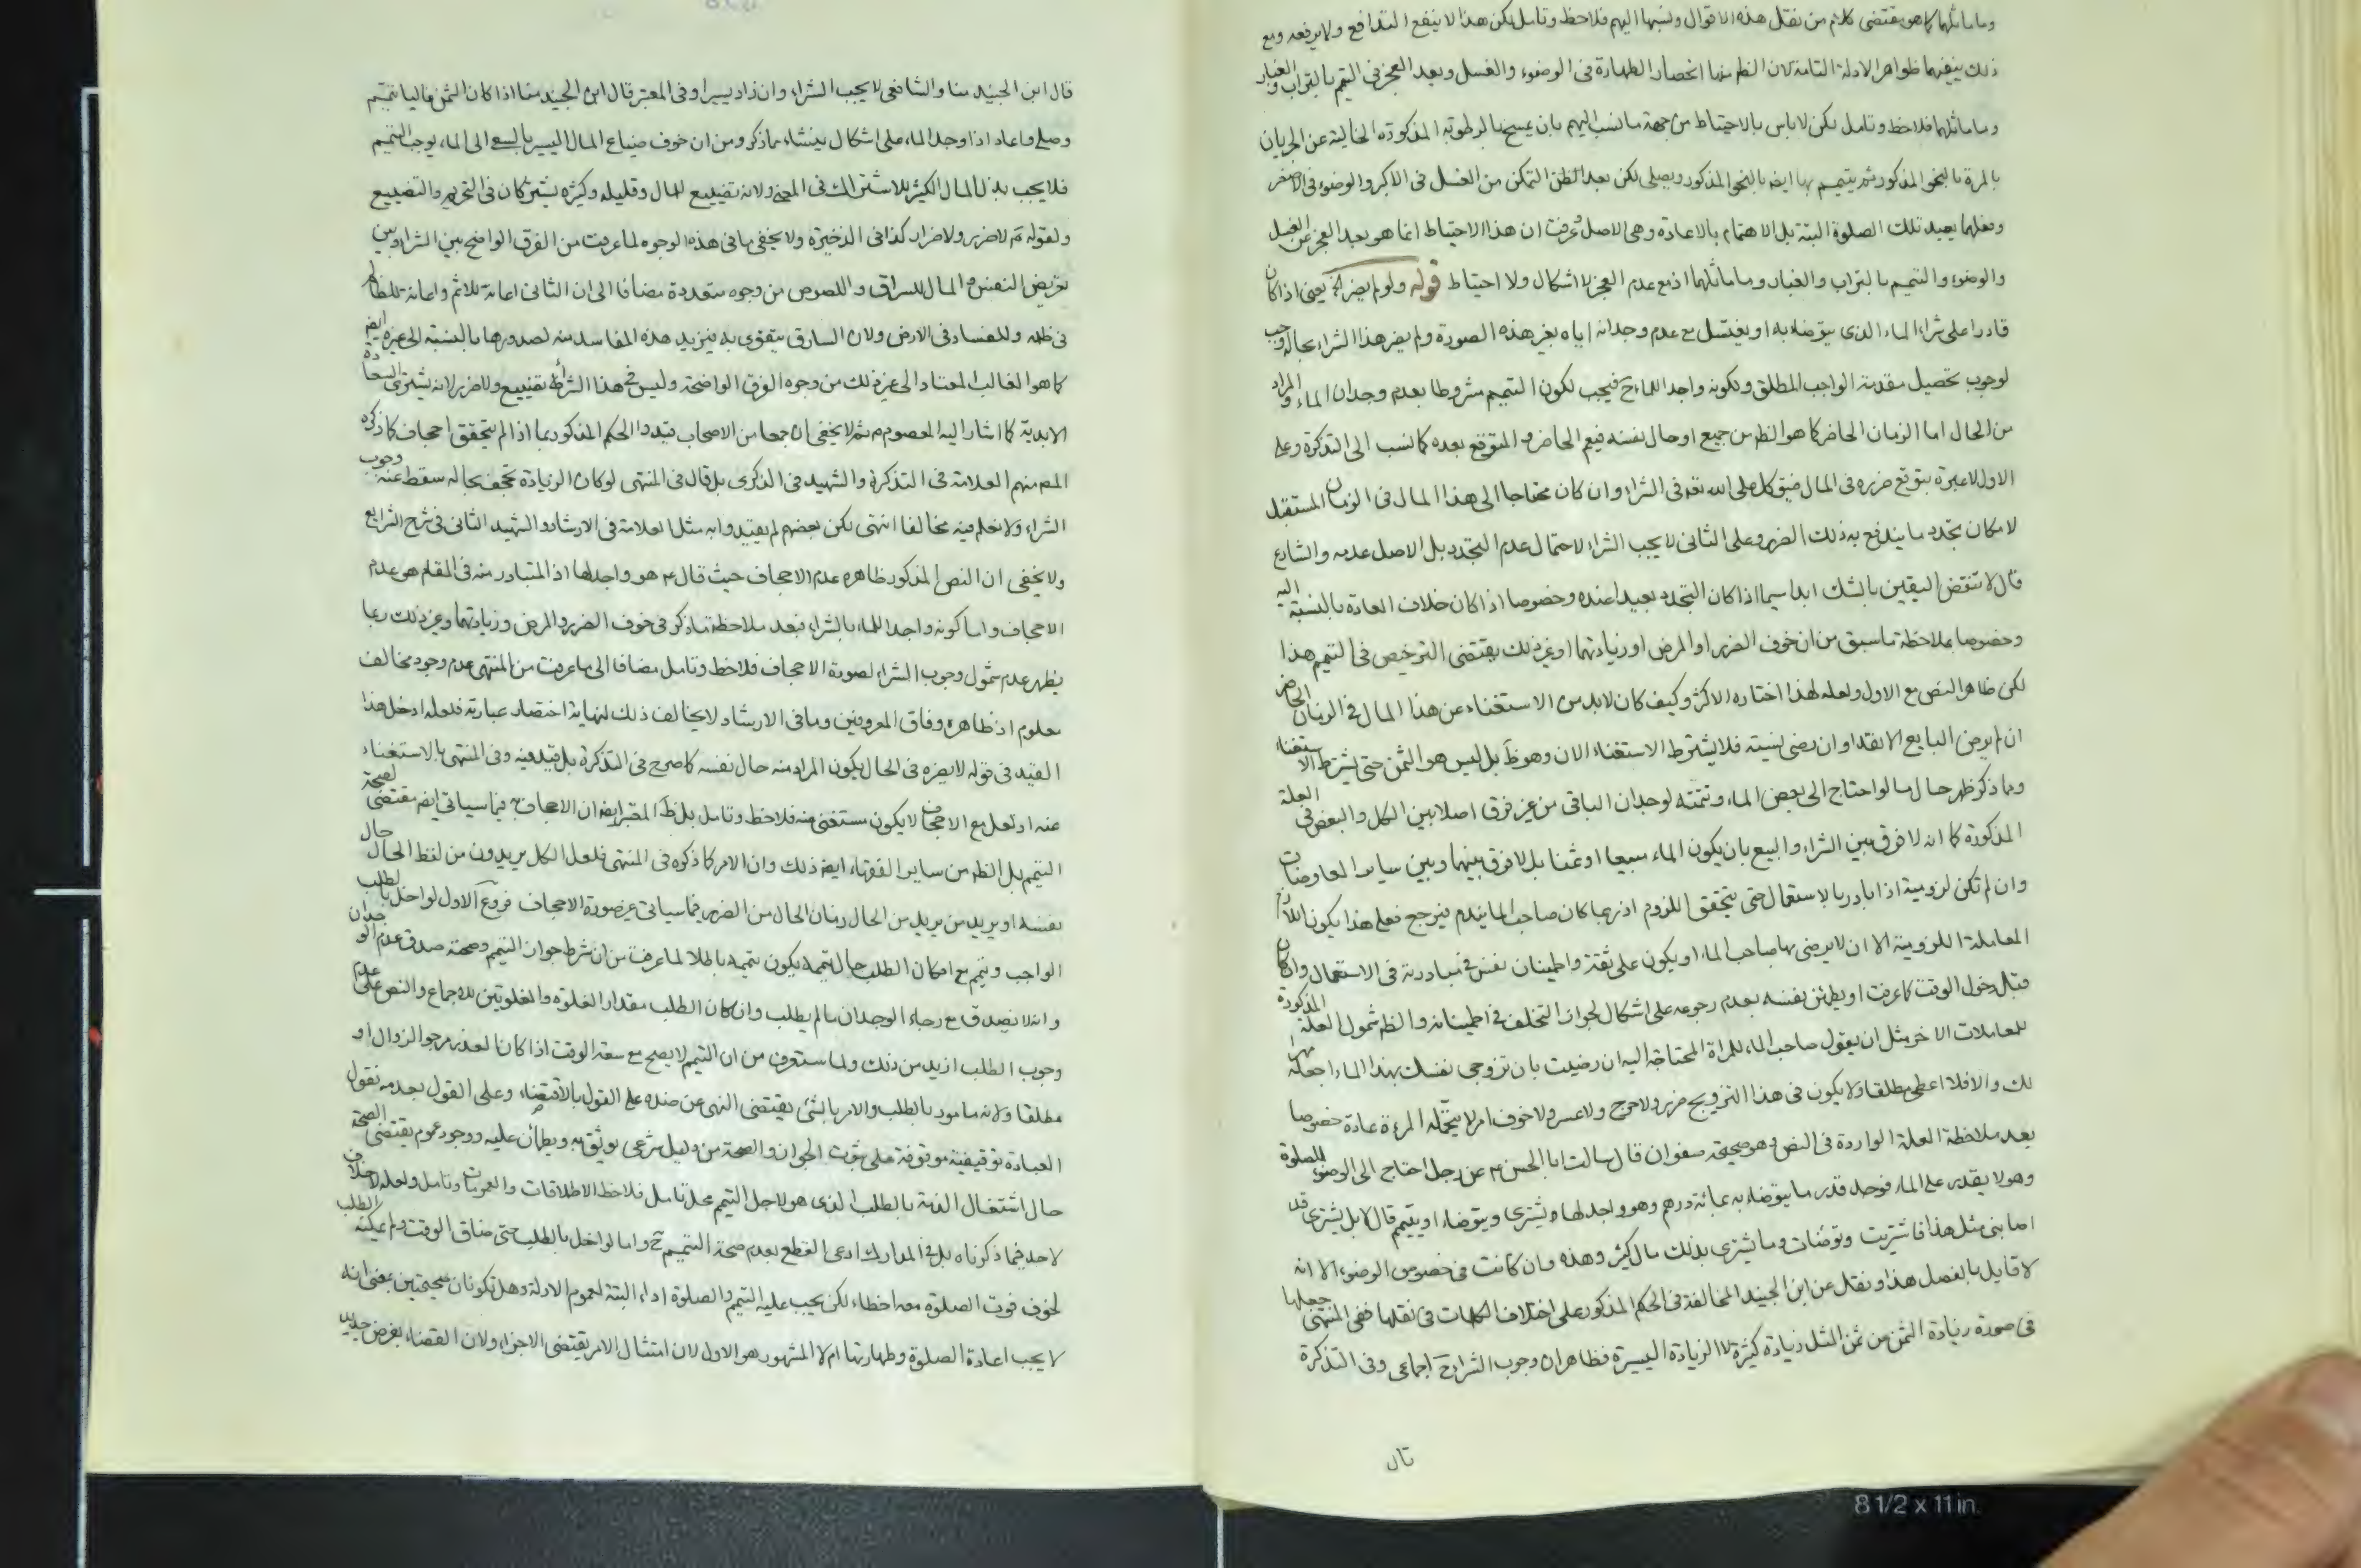 وما ماثلهما كما هو مقتضى كلام من نقل هذه الاقوال ونسبها اليهم فلاحظ وتامل لكن هذا لا ينفع التدافع ولا يرفعه ومع
ذلك ينفيهما ظواهر الادلة التامة لان الظ منها انحصار الطهارة فى الوضوء والغسل وبعد العجز فى التيمم بالتراب والغبار
وما ماثلهما فلاحظ وتامل لكن لا باس بالاحتياط من جهة ما نسب اليهم بان يمسح بالرطوبة المذكورة الخالية عن الجريان
بالمرة بالنحو المذكور ثم يتيمم بها ايضا بالنحو المذكور ويصلى لكن بعد التمكن من الغسل فى الاكبر والوضوء فى الاصغر
ومعهما يعيد تلك الصلوة البتة بل الاهتمام بالاعادة وهى الاصل وعرفت ان هذا الاحتياط انما هو بعد العجز عن الغسل
والوضوء والتيمم بالتراب والغبار وما ماثلهما اذ مع عدم العجز لا اشكال ولا احتياط قوله ولو لم يضر الخ يعنى اذا كان
قادرا على شراء الماء الذى يتوضاء به او يغتسل مع عدم وجدانه اياه بغير هذه الصورة ولم يضر هذا الشراء بحاله وجب
لوجوب تحصيل مقدمة الواجب المطلق ولكونه واجدا للماء ح فيجب لكون التيمم مشروطا بعدم وجدان الماء والمراد
من الحال اما الزمان الحاضر كما هو الظ من جميع او حال نفسه فيعم الحاضر والمتوقع بعده كما نسب الى التذكرة وعلى
الاول لا عبرة بتوقع ضرره فى المال فيتوكل على الله تعه فى الشراء وان كان محتاجا الى هذا المال فى الزمان المستقبل
لامكان تجدد ما يندفع به ذلك الضرر وعلى الثانى لا يجب الشراء لاحتمال عدم التجدد بل الاصل عدمه والشارع
قال لا تنقض اليقين بالشك ابدا سيما اذا كان التجدد بعيدا عنده وخصوصا اذا كان خلاف العادة بالنسبة اليه
وخصوصا بملاحظة ما سبق من ان خوف الضرر او المرض او زيادتهما او غير ذلك يقتضى الترخيص فى التيمم هذا
لكن ظاهر النص مع الاول ولعله لهذا اختاره الاكثر وكيف كان لا بد من الاستغناء عن هذا المال فى الزمان الحاضر
ان لم يرض البايع الا نقدا وان رضى نسية فلا يشترط الاستغناء الان وهو ظ بل ليس هو الثمن حتى يشترط الاستغناء
وبما ذكر ظهر حال ما لو احتاج الى بعض الماء وتتمته لوجدان الباقى من غير فرق اصلا بين الكل والبعض فى العلة
المذكورة كما انه لا فرق بين الشراء والبيع بان يكون الماء مبيعا او ثمنا بل لا فرق بينهما وبين ساير المعاوضات
وان لم تكن لزومية اذا بادر بالاستعمال حتى يتحقق اللزوم اذ ربما كان صاحب الماء يندم فيرجع فعلى هذا يكون اللازم
المعاملة اللزومية الا ان لا يرضى بها صاحب الماء او يكون على ثقة واطمينان نفس فى مبادرته فى الاستعمال وان كان
قبل دخول الوقت كما عرفت او يطمئن نفسه بعدم رجوعه على اشكال لجواز التخلف فى اطمينانه والظ شمول العلة المذكورة
للمعاملات الاخر مثل ان يقول صاحب الماء للمراة المحتاجة اليه ان رضيت بان تزوجى نفسك بهذا الماء اجعله مهرا
لك والا فلا اعطى مطلقا ولا يكون فى هذا التزويج ضرر ولا حرج ولا عسر ولا خوف امر لا يتحمله المرءة عادة خصوصا
بعد ملاحظة العلة الواردة فى النص وهو صحيحة صفوان قال سالت ابا الحسن ع عن رجل احتاج الى الوضوء للصلوة
وهو لا يقدر على الماء فوجد قدر ما يتوضاء به بمائة درهم وهو واجد لها يشترى ويتوضاء او يتيمم قال لا بل يشترى قد
اصابنى مثل هذا فاشتريت وتوضات وما يشترى بذلك مال كثير وهذه وان كانت فى خصوص الوضوء الا انه
لا قايل بالفصل هذا ونقل عن ابن الجنيد المخالفة فى الحكم المذكور على اختلاف الكلمات فى نقلها ففى المنتهى جعلها
فى صورة زيادة الثمن من ثمن المثل زيادة كثيرة لا الزيادة اليسيرة فظاهر ان وجوب الشراء ح اجماعى وفى التذكرة
قال
قال ابن الجنيد منا والشافعى لا يجب الشراء وان زاد يسيرا وفى المعتبر قال ابن الجنيد منا اذا كان الثمن غاليا تيمم
وصلى واعاد اذا وجد الماء على اشكال ينشاء مما ذكر ومن ان خوف ضياع المال اليسير بالسعى الى الماء يوجب التيمم
فلا يجب بذل المال الكثير للاشتراك فى المعنى ولانه تضييع للمال وقليله وكثيره يشتركان فى التحريم والتضييع
ولقوله ع لا ضرر ولا ضرار كذا فى الذخيرة ولا يخفى ما فى هذه الوجوه لما عرفت من الفرق الواضح بين الشراء وبين
تعريض النفس والمال للسراق واللصوص من وجوه متعددة مضافا الى ان الثانى اعانة للاثم واعانة للظالم
فى ظلمه وللفساد فى الارض ولان السارق يتقوى به فيزيد هذه المفاسد منه لصدورها بالنسبة الى غيره ايض
كما هو الغالب المعتاد الى غير ذلك من وجوه الفرق الواضحة وليس فى هذا الشراء تضييع ولا ضرر لانه يشترى السعادة
الابدية كما اشار اليه المعصوم ع ثم لا يخفى ان جمعا من الاصحاب قيدوا الحكم المذكور بما اذا لم يتحقق اجحاف كما ذكره
المص منهم العلامة فى التذكرة والشهيد فى الذكرى بل قال فى المنتهى لو كان الزيادة تجحف بحاله سقط عنه وجوب
الشراء ولا نعلم فيه مخالفا انتهى لكن بعضهم لم يقيدوا به مثل العلامة فى الارشاد والشهيد الثانى فى شرح الشرايع
ولا يخفى ان النص المذكور ظاهره عدم الاجحاف حيث قال ع هو واجد لها اذ المتبادر منه فى المقام هو عدم
الاجحاف واما كونه واجدا للماء بالشراء فبعد ملاحظة ما ذكر فى خوف الضرر والمرض وزيادتهما وغير ذلك ربما
يظهر عدم شمول وجوب الشراء لصورة الاجحاف فلاحظ وتامل مضافا الى ما عرفت من المنتهى عدم وجود مخالف
معلوم اذ ظاهره وفاق المعروفين وما فى الارشاد لا يخالف ذلك لنهاية اختصار عبارته فلعله ادخل هذا
القيد فى قوله لا يضره فى الحال بكون المراد منه حال نفسه كما صرح فى التذكرة بل قيد فيه وفى المنتهى بالاستغناء
عنه اذ لعل مع الاجحاف لا يكون مستغنى عنه فلاحظ وتامل بل ظ المعتبر ايض ان الاجحاف فيما سياتى ايض مقتضى لصحة
التيمم بل الظ من ساير الفقهاء ايض ذلك وان الامر كما ذكره فى المنتهى فلعل الكل يريدون من لفظ الحال حال
نفسه او يريد من يريد من الحال زمان الحال من الضرر فيما سياتى غير صورة الاجحاف فروع الاول لو اخل بالطلب
الواجب وتيمم مع امكان الطلب حال تيممه يكون تيممه باطلا لما عرفت من ان شرط جواز التيمم وصحته صدق عدم الوجدان
وانه لا يصدق مع رجاء الوجدان ما لم يطلب وان كان الطلب مقدار الغلوة والغلوتين للاجماع والنص على عدم
وجوب الطلب ازيد من ذلك ولما ستعرف من ان التيمم لا يصح مع سعة الوقت اذا كان العذر مرجو الزوال او
مطلقا ولانه مامور بالطلب والامر بالشئ يقتضى النهى عن ضده على القول بالاقتضاء وعلى القول بعدمه نقول
العبادة توقيفية موقوفة على ثبوت الجواز والصحة من دليل شرعى يوثق به ويطمان عليه ووجود عموم يقتضى الصحة
حال اشتغال الذمة بالطلب الذى هو لاجل التيمم محل تامل فلاحظ الاطلاقات والعمومات وتامل ولعله لا خلاف
لاحد فيما ذكرناه بل فى المدارك ادعى القطع بعدم صحة التيمم ح واما لو اخل بالطلب حتى ضاق الوقت ولم يمكنه الطلب
لخوف فوت الصلوة معه اخطاء لكن يجب عليه التيمم والصلوة اداء البتة لعموم الادلة وهل تكونان صحيحتين بمعنى انه
لا يجب اعادة الصلوة وطهارتها ام لا المشهور هو الاول لان امتثال الامر يقتضى الاجزاء ولان القضاء بفرض جديد
8 1/2 x 11 in.